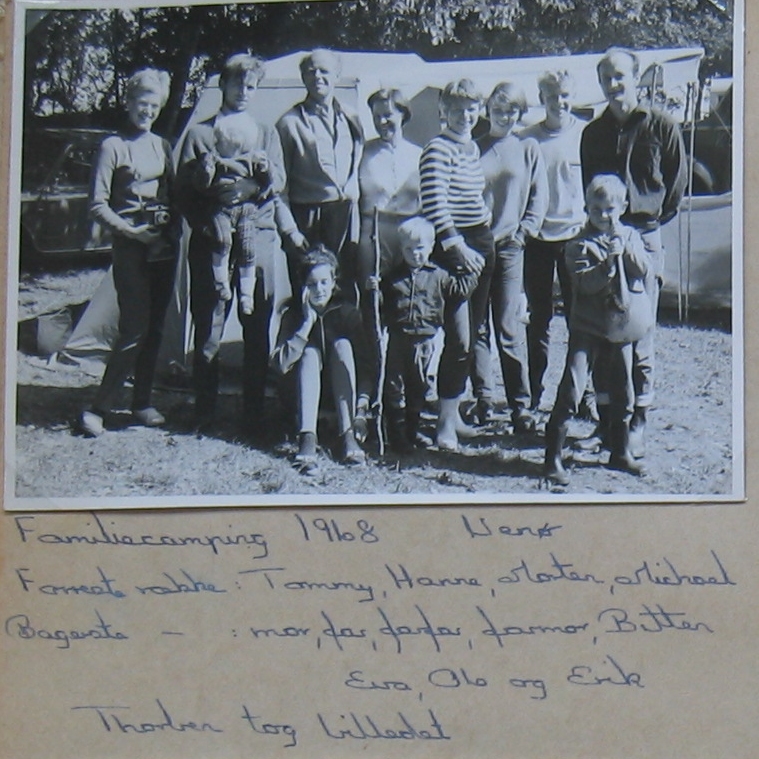 Familiecamping 1968 Venø
Forreste række: Tommy, Hanne, Morten, Michael
Bageste - : mor, far, farfar, farmor, Bitten
Eva, Ole og Erik
Thorben tog billedet